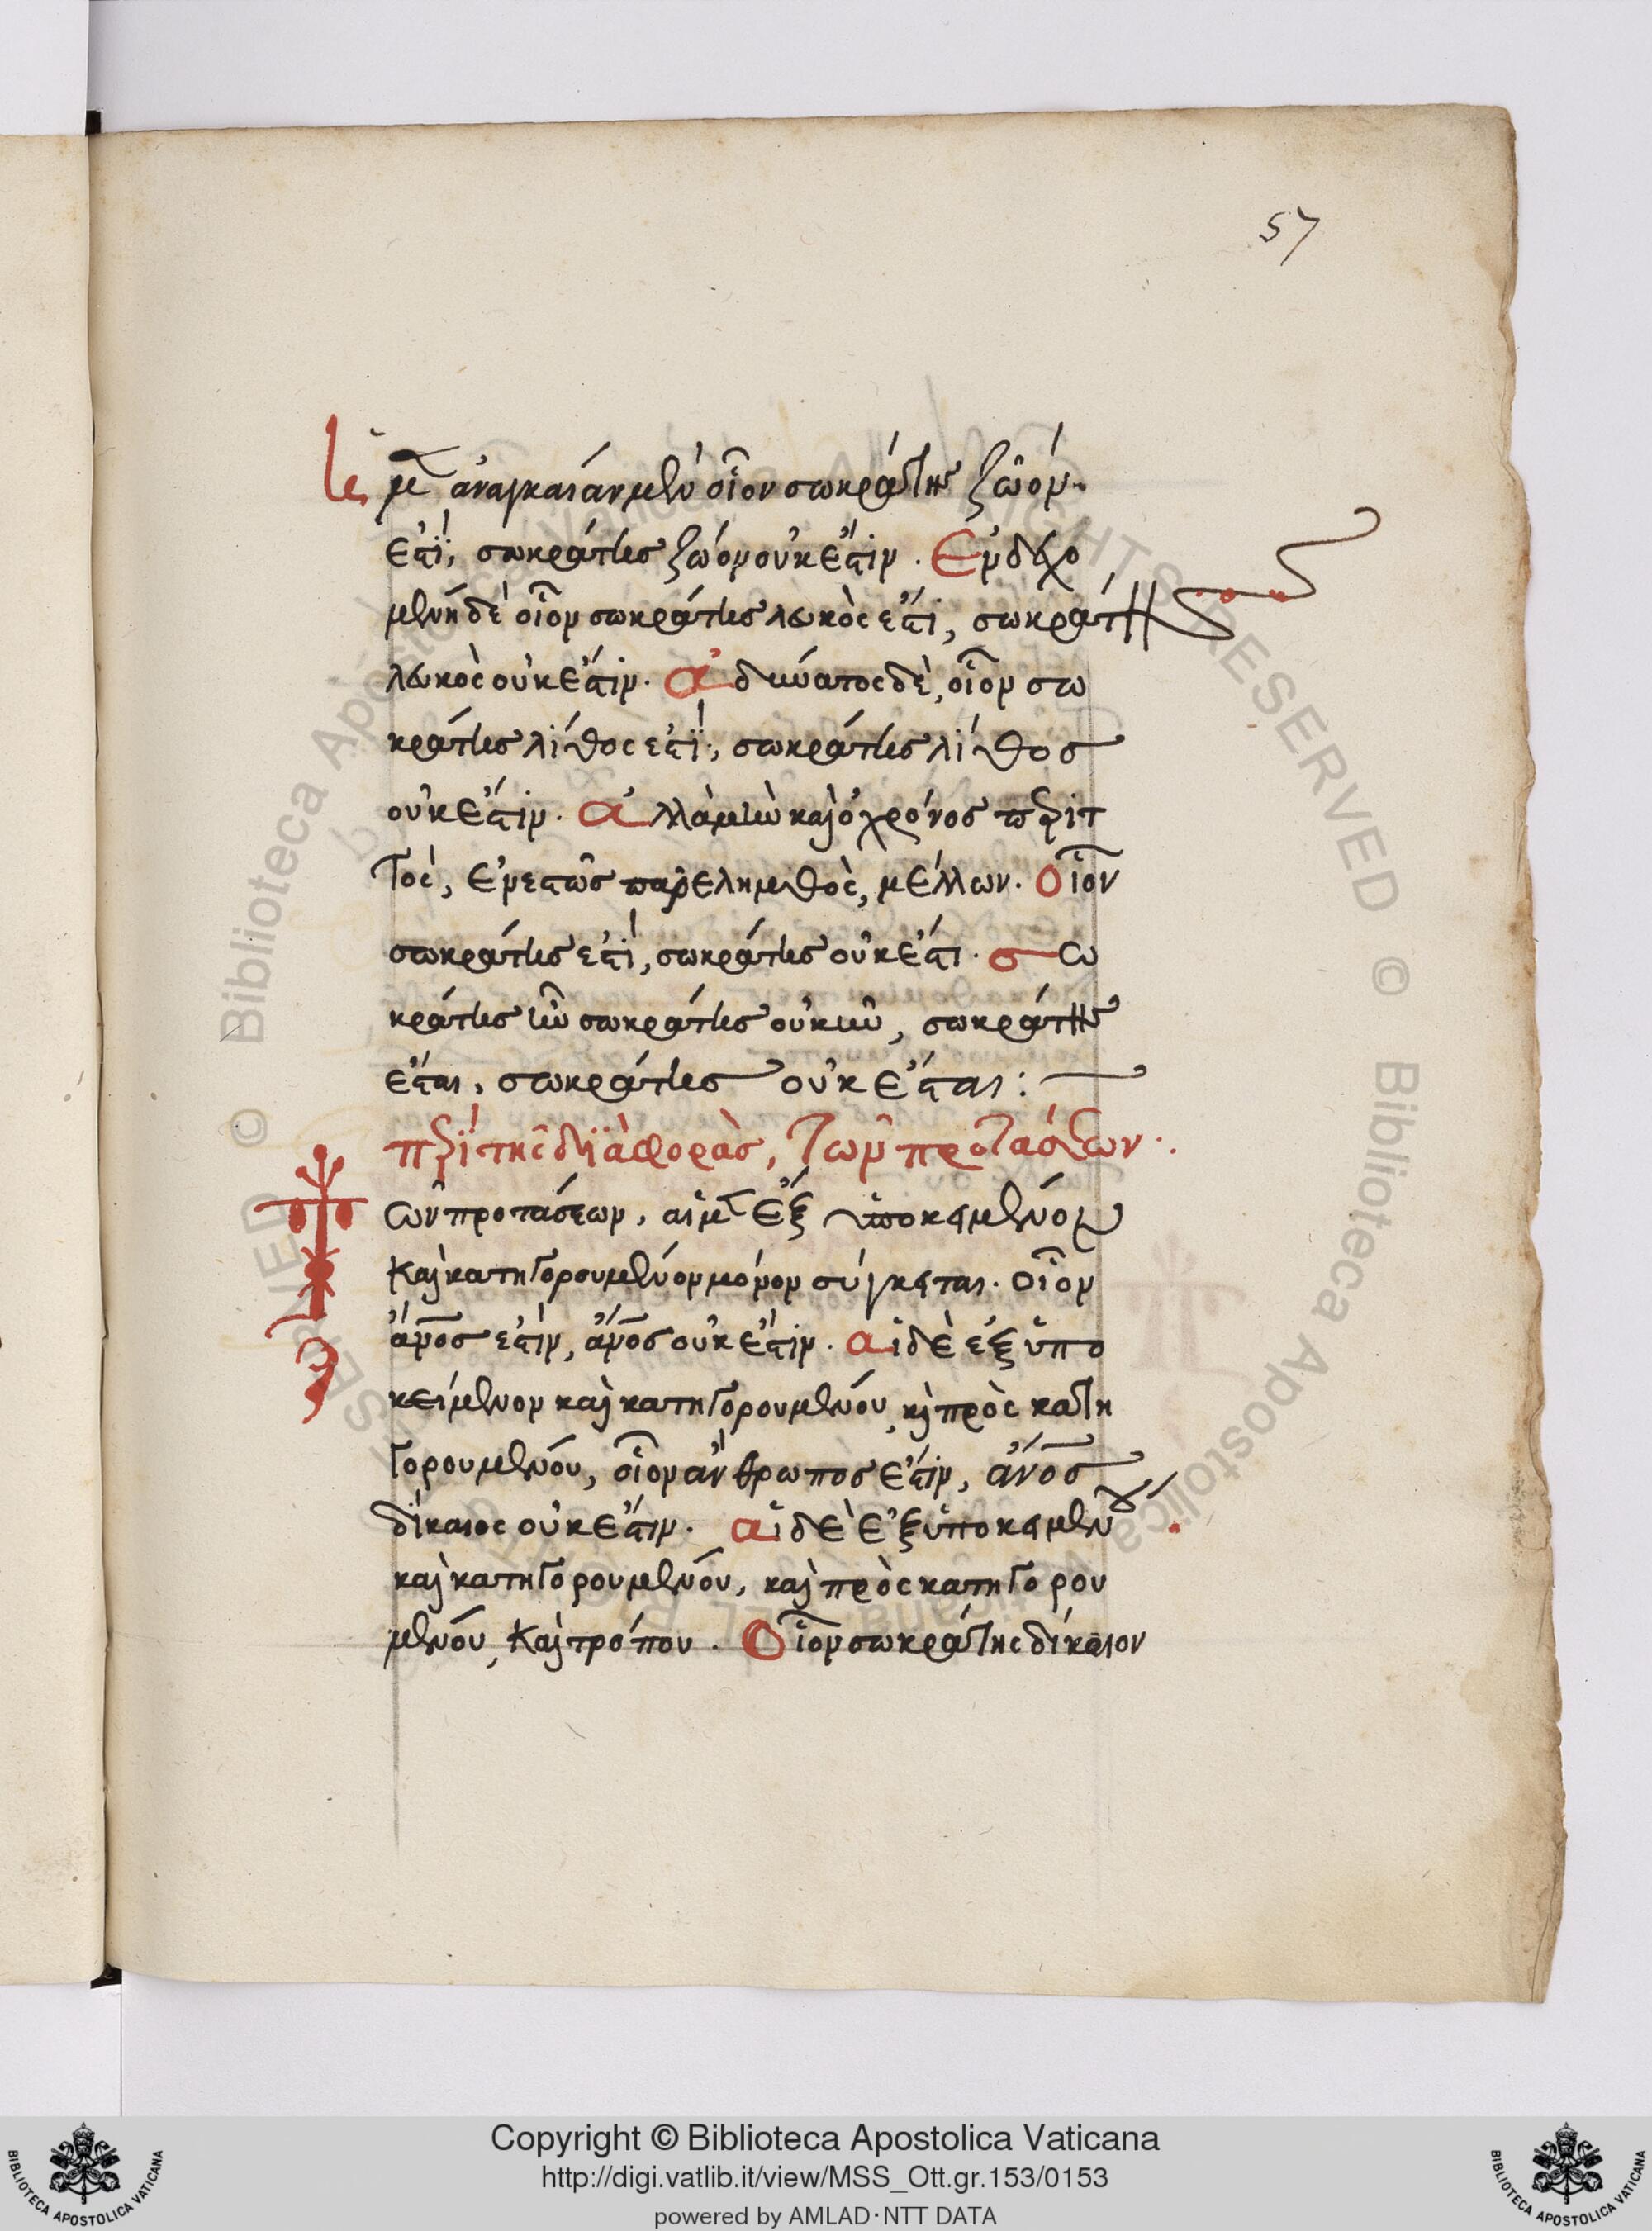 57
ἀναγκαίαν μὲν οἷον σωκράτης ζῶόν
ἐστί, σωκράτης ζῶον οὐκ ἔστιν. Ἐνδεχο
μένη δὲ οἷον σωκράτης λευκὸς ἐστί, σωκράτης
λευκὸς οὐκ ἔστιν. Ἀδύνατος δὲ, οἷον σω
κράτης λίθος ἐστί, σωκράτης λίθος
οὐκ ἔστιν. Ἀλλὰ μὴν καὶ ὁ χρόνος τριτ
τὸς, ἐνεστῶς παρεληλυθὸς, μέλλων. Οἷον
σωκράτης ἐστί, σωκράτης οὐκ ἔστι. σω
κράτης ἦν σωκράτης οὐκ ἦν, σωκράτης
ἔσται, σωκράτης οὐκ ἔσται:
περὶ τῆς διαφορὰς, τῶν προτάσεων.
Τῶν προτάσεων, αἱ μὲν ἐξ ὑποκειμένου
καὶ κατηγορουμένου μόνον σύγκειται. οἷον
ἄνος ἐστίν, ἄνος οὐκ ἔστιν. αἱ δὲ ἐξ ὑπο
κείμενου καὶ κατηγορουμένου, καὶ πρὸς κατη
γορουμένου, οἷον ἄνθρωπος ἔστιν, ἄνος
δίκαιος οὐκ ἔστιν. αἱ δὲ ἐξ ὑποκειμένου
καὶ κατηγορουμένου, καὶ πρὸς κατηγορου
μένου, καὶ τρόπου. Οἷον σωκράτης δίκαιον
© Biblioteca Apostolica Vaticana ALL RIGHTS RESERVED
Copyright © Biblioteca Apostolica Vaticana
http://digi.vatlib.it/view/MSS_Ott.gr.153/0153
powered by AMLAD·NTT DATA
BIBLIOTECA APOSTOLICA VATICANA
BIBLIOTECA APOSTOLICA VATICANA